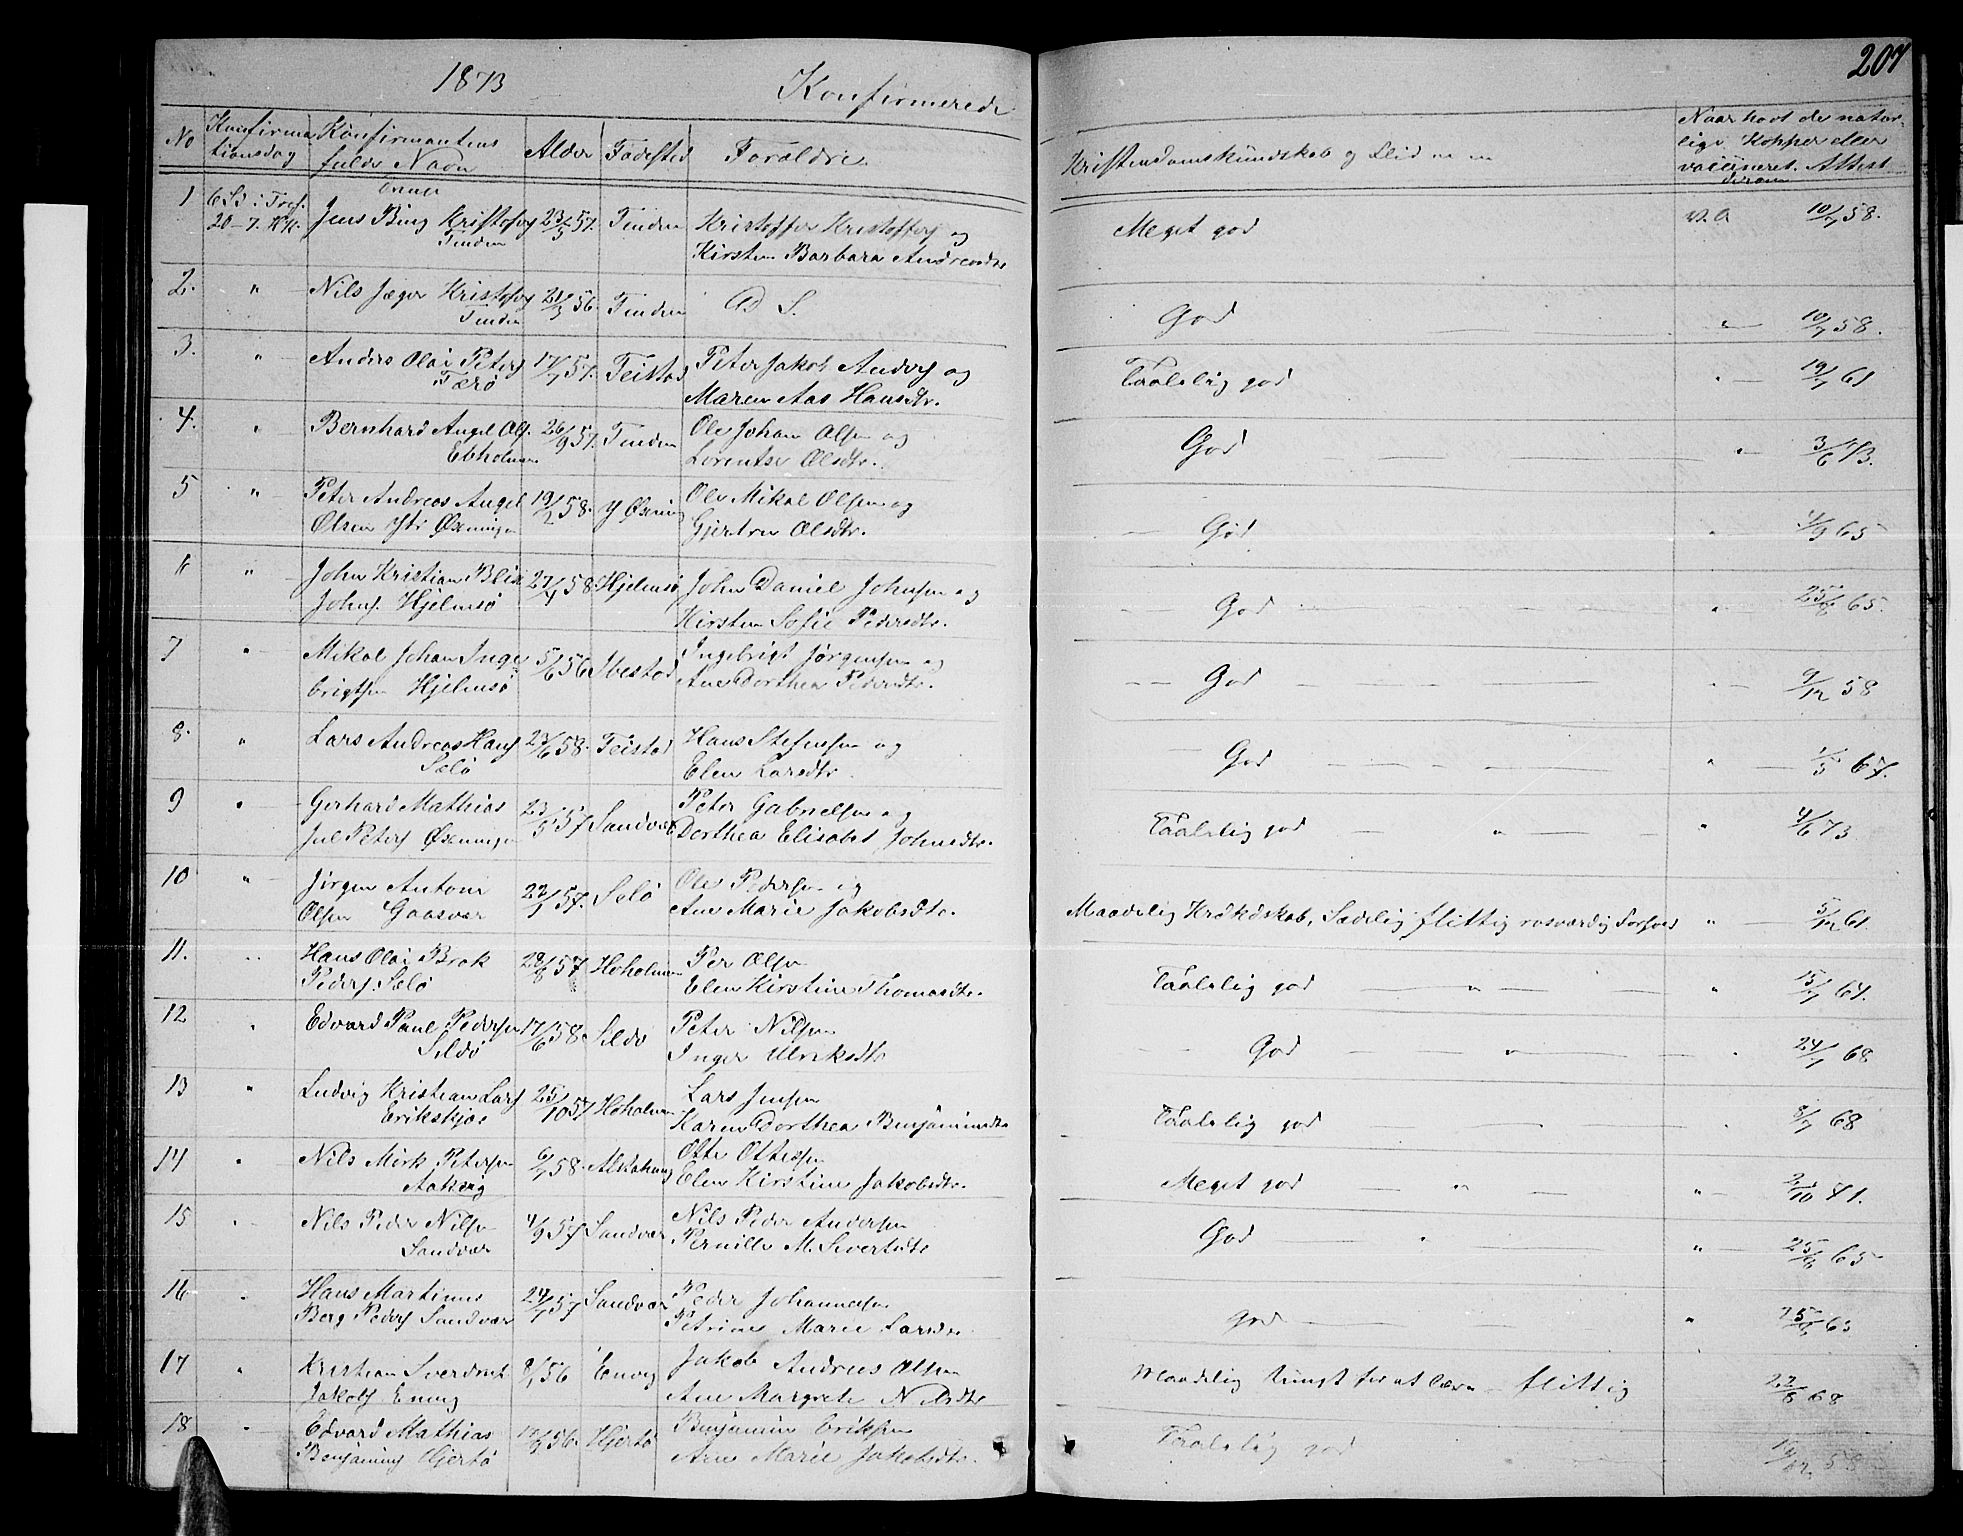 1873 Konfirmerede
207
No Konfirma Konfirmantens Alder Fødested Forældre Kristendomskundskab og Flid Naar havt de natur
tionsdag fulde Navn lige Kopper eller
vaccineret. Attest
derom
1 6 S i Tref. Jens Bing Kristofers 23/5 57. Tinden Kristoffer Kristoffers og Meget god v. a 10/7 58.
20-7. Tinden Kirsten Barbara Andreasdtr
2. " Nils Jæger Kristofers 21/3 56. Tinden D S. God " 10/7 58.
Tinden
3. " Anders Olai Peters 17/7 57. Teistad Peter Jakob Anders og Taalelig god " 19/7 61
Færø Maren Aas Hansdtr.
4. " Bernhard Angel Ols. 26/9 57. Tinden Ole Johan Olsen og God " 3/6 73.
Ebholmen Lorentse Olsdtr.
5 " Peter Andreas Angel 19/2 58. Y Øxning Ole Mikal Olsen og God " /9 65
Olsen Ytr Øxningen Gjertru Olsdtr.
6 " John Kristian Blix 27/4 58. Hjelmsø John Daniel Johnsen og God " 25/8 65.
Johns. Hjelmsø Kirsten Sofie Pedersdtr.
7 " Mikal Johan Inge 5/6 56 Ibestad Ingebrigt Jørgensen og God " 9/12 58
brigtsen Hjelmsø Ane Dorthea Pedersdtr.
8. " Lars Andreas Hans 23/6 58. Teistad Hans Stefensen og God " 1/5 67.
Sælø Elen Larsdtr.
9 " Gerhard Mathias 23/5 57 Sandvær Peter Gabrielsen og Taalelig god " " 4/6 73
Jul Peters Øxningen Dorthea Elisabet Johnsdtr.
10 " Jørgen Antoni 22/1 57. Selø Ole Pedersen og Maadelig Krdkdskab, Sædelig flittig rosværdig Forhold " 5/12 61.
Olsen Gaasvær Ane Marie Jakobsdtr.
11. " Hans Olai Brok 28/8 57 Høholmen Per Olsen Taalelig god " " 15/7 61.
Peders. Sælø Elen Kirstine Thomasdtr.
12 " Edvard Paul Pedersen 17/6 58. Sildø Peter Nilsen God " " 24/7 68
Sildø Inger Ulriksdtr
13 " Ludvig Kristian Lars 25/10 57 Høholmen Lars Jensen Taalelig god " 8/7 68
Erikskjær Karen Dorthea Benjaminsdtr
14 " Nils Mørk Petersen 6/1 58. Alstahaug Otte Ottesen Meget god " " 2/10 71.
Aakvig Elen Kirstine Jakobsdtr.
15 " Nils Peder Nilsen 4/9 57 Sandvær Nils Peder Andersen God " " 25/8 65
Sandvær Pernille M. Sivertsdtr
16 " Hans Martinus 24/7 57 Sandvær Peder Johannesen God " 25/8 65
Berg Peders Sandvær Petrine Marie Larsdtr
17 " Kristian Sverdrup 8/1 56 Envig Jakob Andreas Olsen Maadelig tungt for at lære flittig 22/8 68
Jakobs. Envig Ane Margrete Nilsdtr
18 " Edvard Mathias /9 56. Hjertø Benjamin Eriksen Taalelig god 19/12 58
Benjamins Hjertø Ane Marie Jakobsdtr.